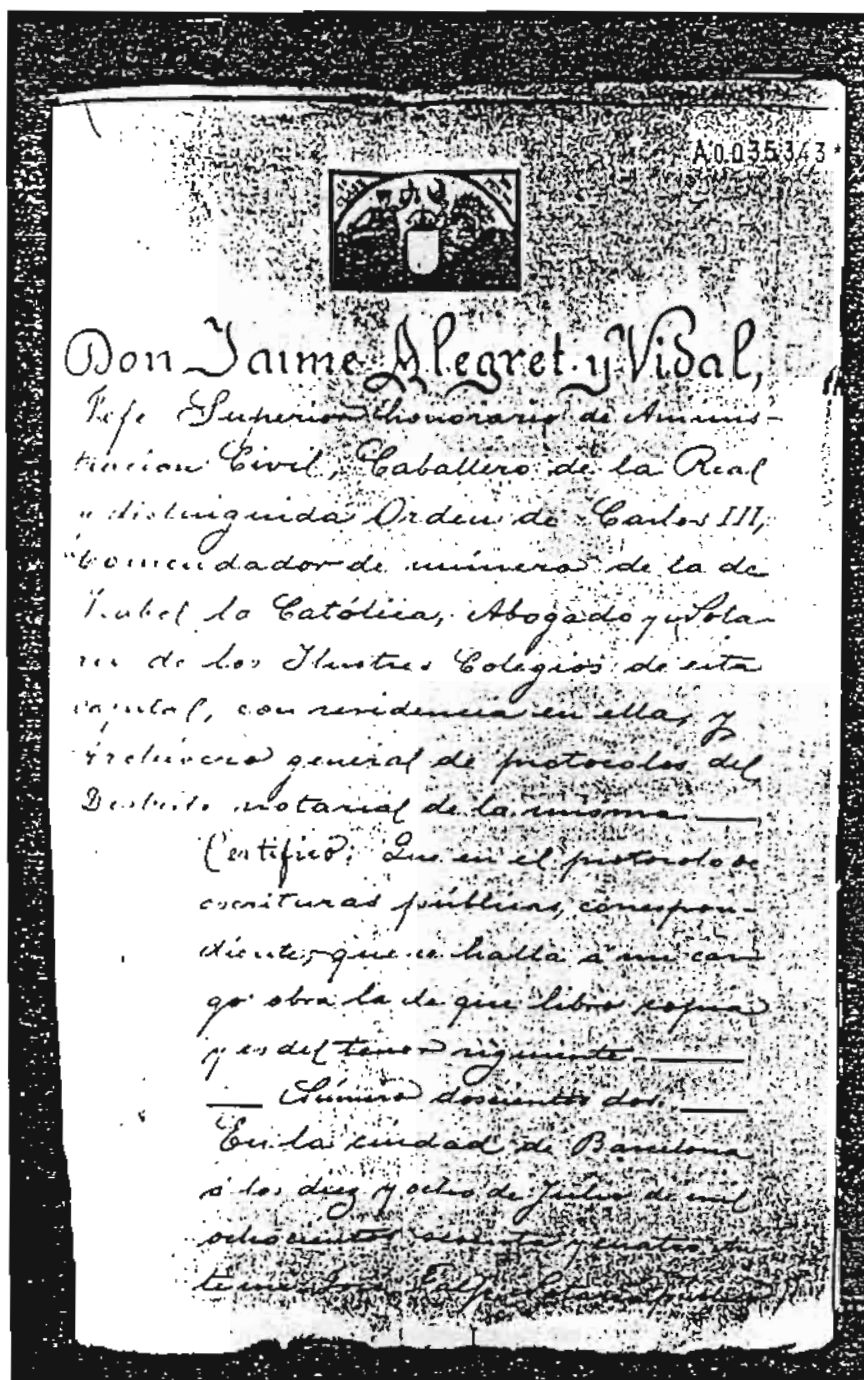 A0035343*
Don Jaime Alegret y Vidal,
Jefe Superior honorario de Adminis-
tracion Civil, Caballero de la Real
y distinguida Orden de Carlos III,
Comendador de número de la de
Isabel la Católica, Abogado y Nota-
rio de los Ilustres Colegios de esta
capital, con residencia en ella, y
Archivero general de protocolos del
Distrito notarial de la misma
Certifico: Que en el protocolo de
escrituras públicas, correspon-
diente, que se halla á mi car-
go obra la de que libro copia
y es del tenor siguiente.
Número doscientos dos.
En la ciudad de Barcelona
á los diez y ocho de Julio de mil
ochocientos sesenta y cuatro
José Falp Notario